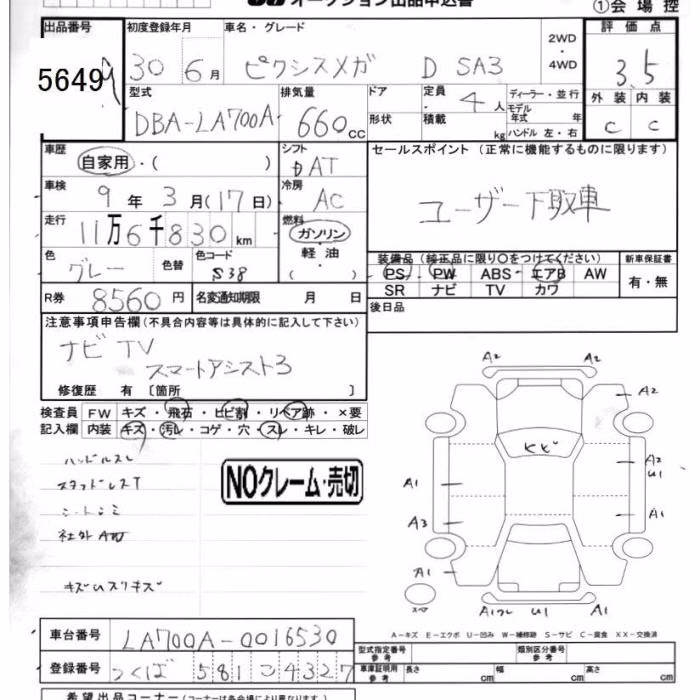 オークション出品申込書
①会場控
出品番号 初度登録年月 車名・グレード 2WD・4WD 評価点
5649 30 6月 ピクシスメガ D SA3 3.5
型式 排気量 ドア 定員 4人 ディーラー・並行 外装 内装
DBA-LA700A 660cc 形状 積載 kg モデル年式 年式 ハンドル 左・右 C C
車歴 シフト セールスポイント (正常に機能するものに限ります)
自家用・( ) DAT
車検 9年3月(17日) 冷房 AC ユーザー下取車
走行 11万6千830km 燃料 ガソリン・軽油( )
色 グレー 色替 色コード S38
装備品 (純正品に限り○をつけてください) 新車保証書
PS PW ABS エアB AW 有・無
SR ナビ TV カワ
R券 8560円 名変通知期限 月 日 後日品
注意事項申告欄 (不具合内容等は具体的に記入して下さい)
ナビ TV
スマートアシスト3
修復歴 有 〔箇所 〕
検査員 FW キズ・飛石・ヒビ割・リペア跡・×要
記入欄 内装 キズ・汚レ・コゲ・穴・スレ・キレ・破レ
ハンドルスレ
スタッドレスT
シートシミ
社外AW
NOクレーム・売切
A2 A2
A2
A2
U1
A1
A1
A3
A1
A1
U1
A-キズ E-エクボ U-凹み W-補修跡 S-サビ C-腐食 XX-交換済
車台番号 LA700A-0016530
型式指定番号 参考 類別区分番号 参考
登録番号 つくば 581 こ 4327
車庫証明用 参考 長さ cm 幅 cm 高さ cm
希望出品コーナー